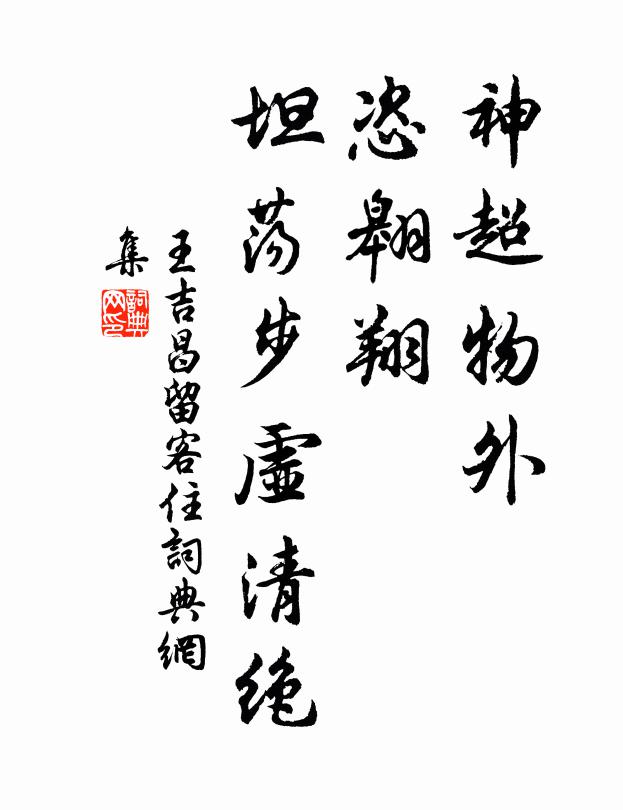 神超物外
恣翱翔
坦荡步虚清绝
王吉昌留客住詞典網
集
詞典
网印